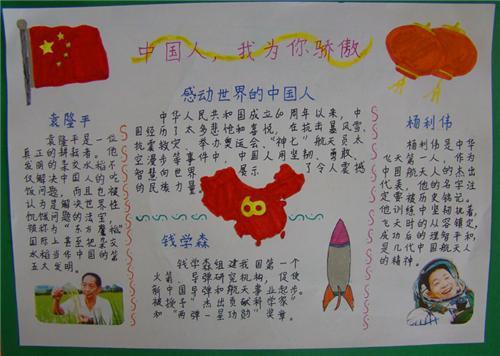 中国人，我为你骄傲
感动世界的中国人
中华人民共和国成立60周年以来，中
国经历了太多悲怆和喜悦，在抗击暴风雪、
抗震救灾、举办奥运会、“神七”航天员太
空漫步等事件中，中国人用坚韧、勇敢、
智慧向世界展示了令人震撼
的民族力量。
60
袁隆平
袁隆平是一位
真正的耕耘者。他
发明的杂交水稻不
仅解决了中国人的吃
饭问题，而且也被
认为是解决世界性
饥饿问题的法宝，
被称为“东方魔稻”
国际上甚至把杂交
水稻当作中国的第
五大发明。
钱学森
钱学森组建我国第一个
火箭、导弹研究机构，促使
新中国导弹和航天事业起步。
被授予“杰出贡献科学家”
和“两弹一星功勋”奖章。
杨利伟
杨利伟是中华
飞天第一人，作为
中国航天人的杰出
代表，他的名字注
定要被历史铭记。
他训练中坚韧执着，
飞天时的从容镇定，
成功后的理智平和，
是几代中国航天人
的精神。